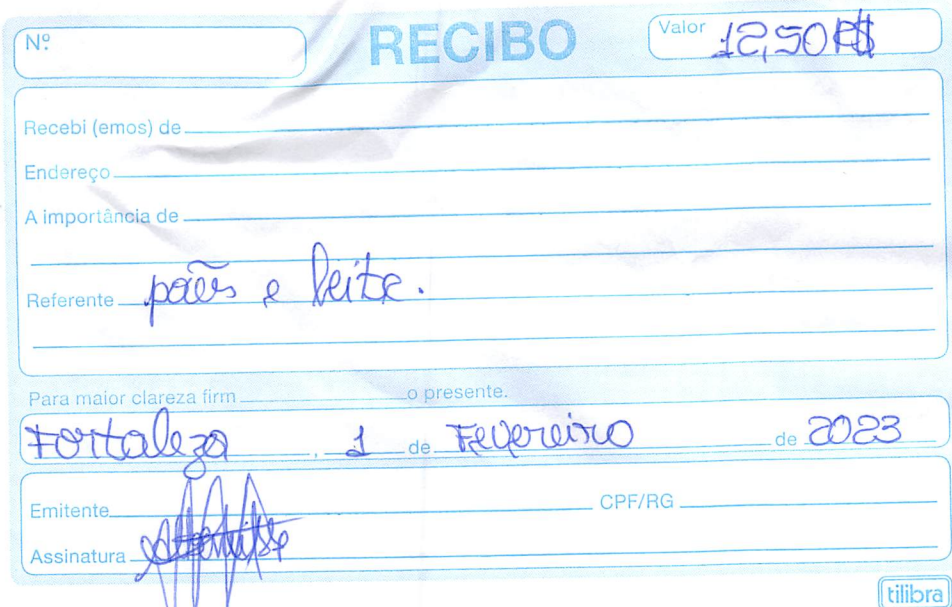 Nº RECIBO Valor 12,50 R$
Recebi (emos) de
Endereço
A importância de
Referente pães e leite.
Para maior clareza firm o presente.
Fortaleza, 1 de Fevereiro de 2023
Emitente CPF/RG
Assinatura
tilibra